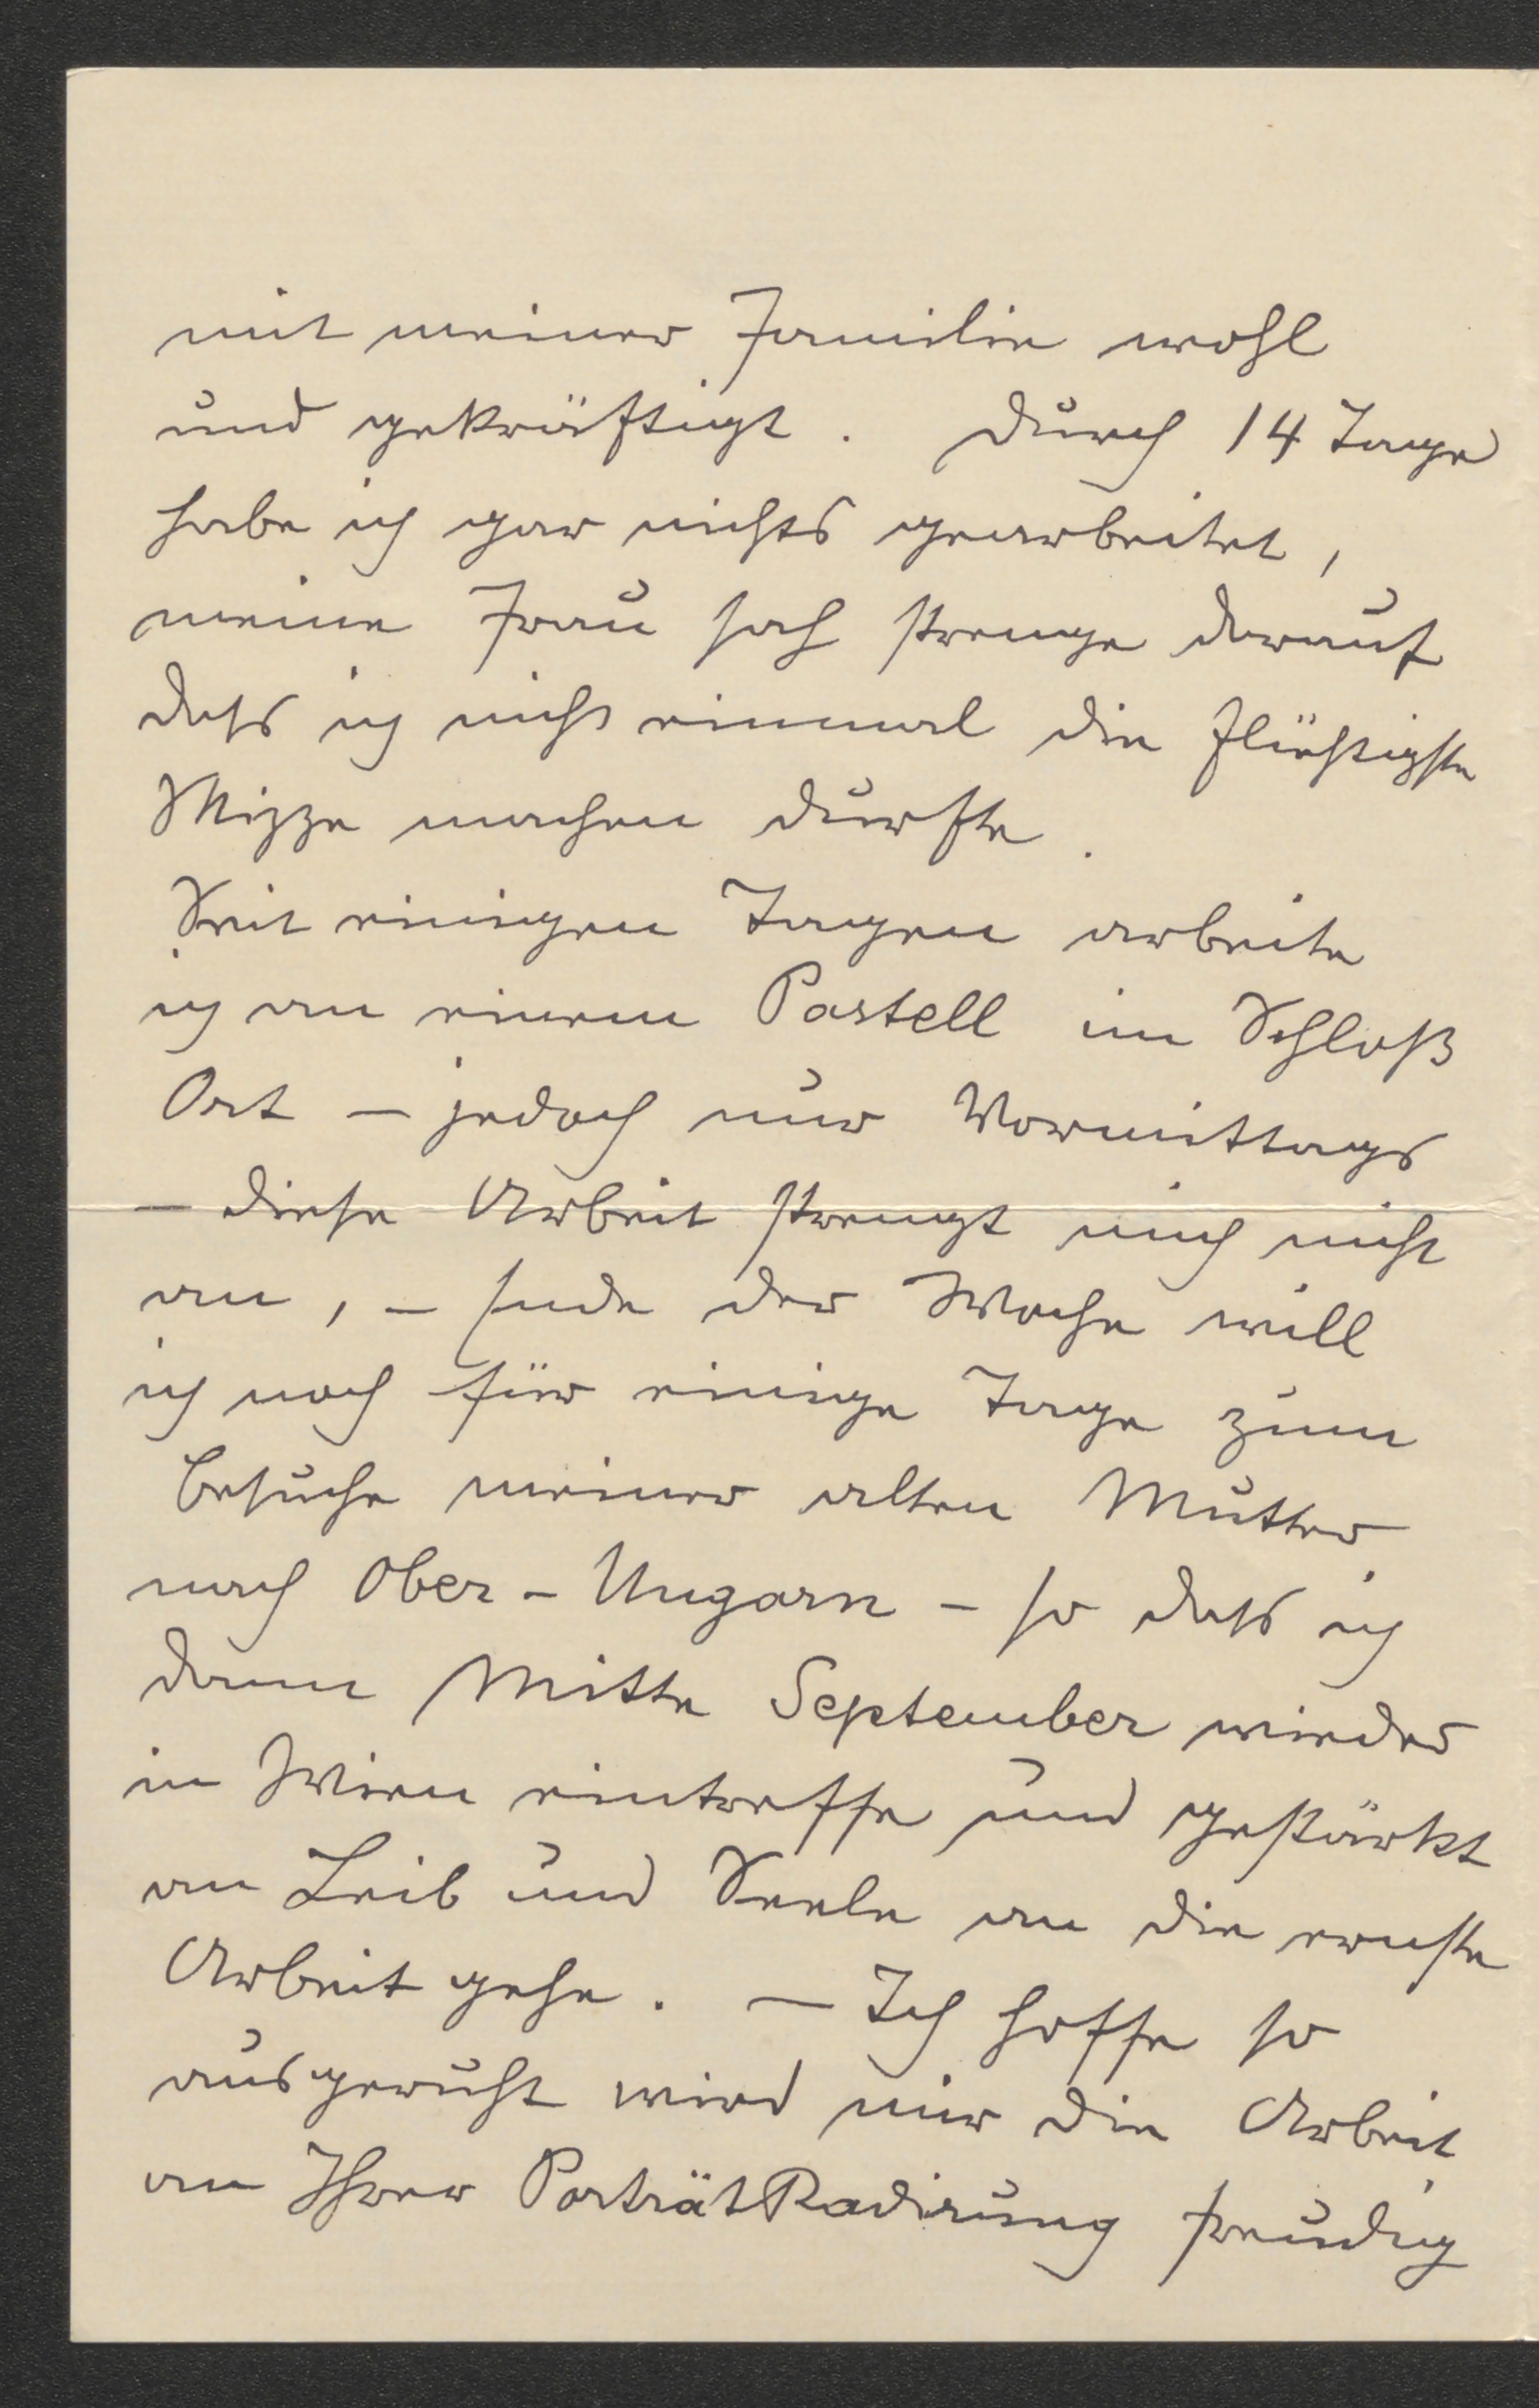 mit meiner Familie wohl
und gekräftigt. Durch 14 Tage
habe ich gar nichts gearbeitet,
meine Frau sah strenge darauf
dass ich nicht einmal die flüchtigste
Skizze machen durfte.
Seit einigen Tagen arbeite
ich an einem Pastell im Schloß
Ort – jedoch nur Vormittags
– diese Arbeit strengt mich nicht
an, – Ende der Woche will
ich noch für einige Tage zum
Besuche meiner alten Mutter
nach Ober-Ungarn – so dass ich
dann Mitte September wieder
in Wien eintreffe und gestärkt
an Leib und Seele an die ernste
Arbeit gehe. – Ich hoffe so
ausgeruht wird mir die Arbeit
an Ihrer Porträt Radirung freudig